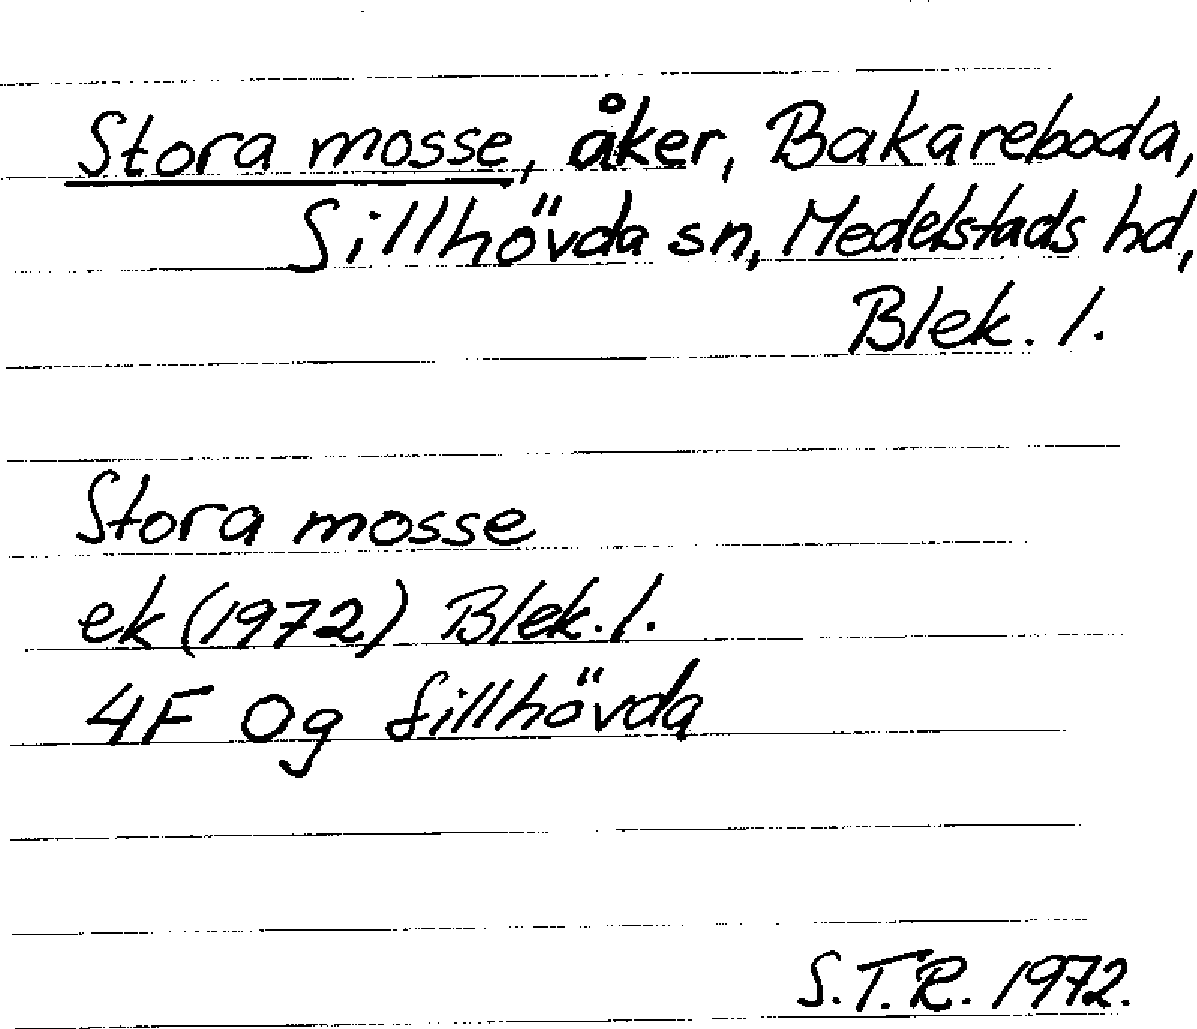 Stora mosse, åker, Bakareboda,
Sillhövda sn, Medelstads hd,
Blek. l.
Stora mosse
ek (1972) Blek. l.
4F 0g Sillhövda
S.T.R. 1972.